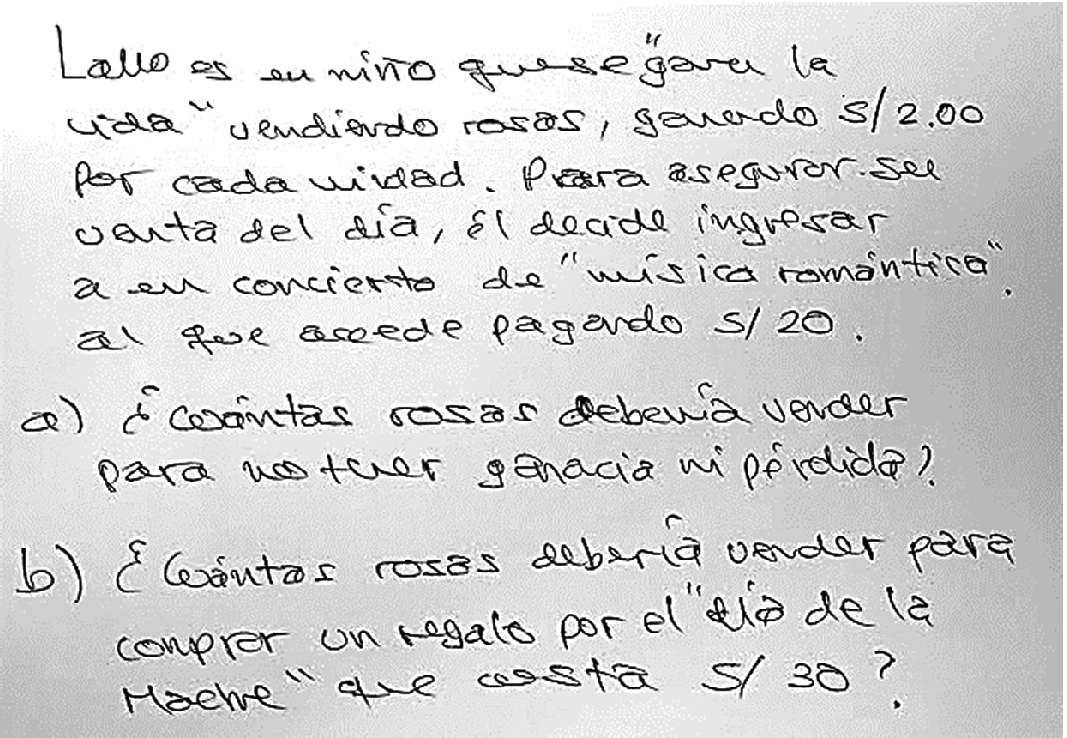 Lalo es un niño que se "gana la
vida" vendiendo rosas, ganando S/2.00
por cada unidad. Para asegurar su
venta del día, él decide ingresar
a un concierto de "música romántica"
al que accede pagando S/ 20.
a) ¿Cuántas rosas debería vender
para no tener ganacia ni pérdida?
b) ¿Cuántas rosas debería vender para
comprar un regalo por el "día de la
Madre" que cuesta S/ 30?